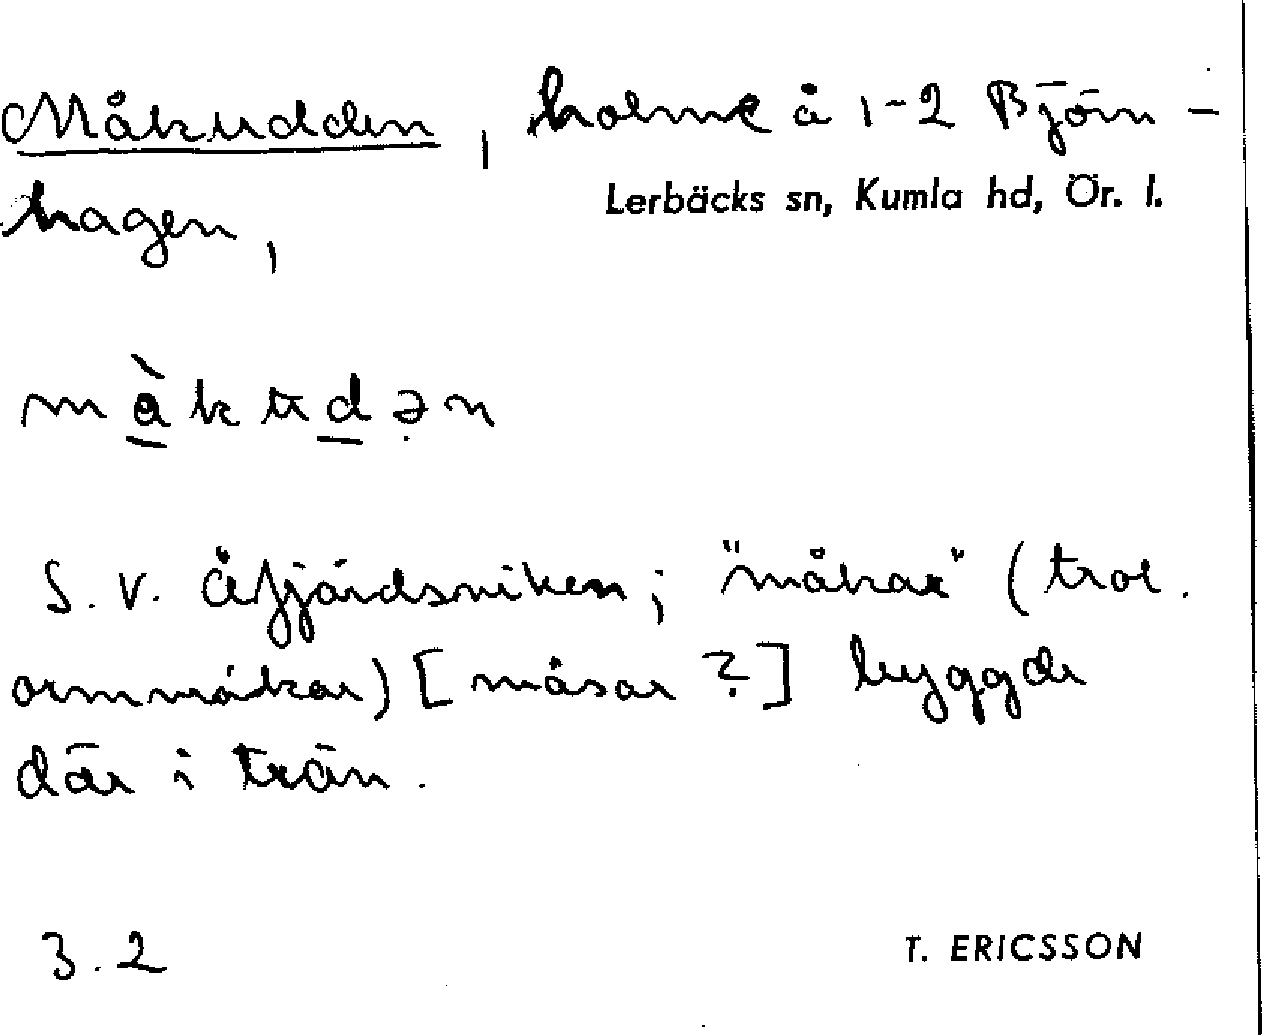 Måkudden, holme å 1-2 Björn-
Lerbäcks sn, Kumla hd, Ör. l.
hagen,
må̀kudən
S.V. Åfjärdsviken; "måkar" (trol.
ormmåkar) [måsar ?] byggde
där i trän.
3.2
T. ERICSSON